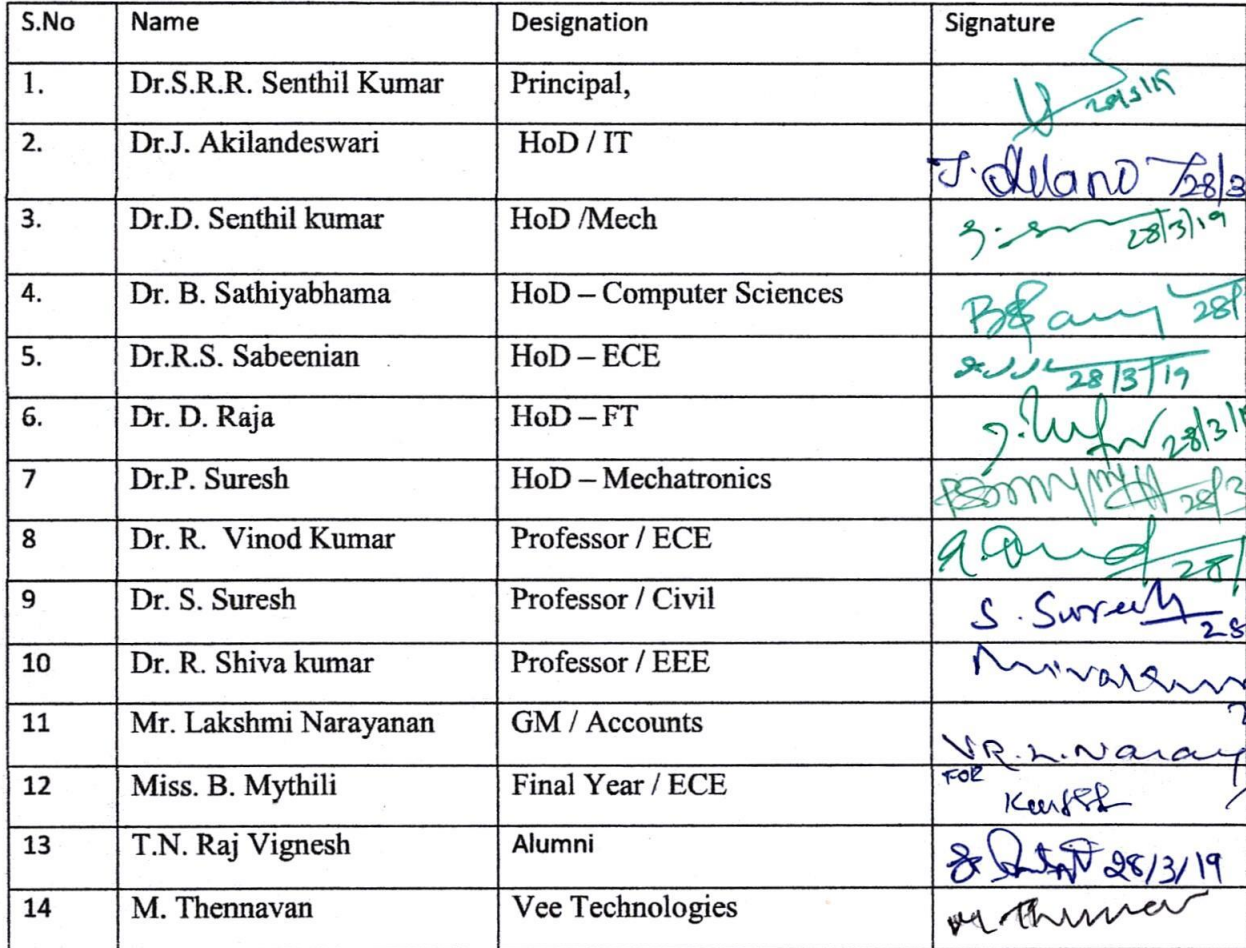 S.No Name Designation Signature
1. Dr.S.R.R. Senthil Kumar Principal,
2. Dr.J. Akilandeswari HoD / IT 28/3
3. Dr.D. Senthil kumar HoD /Mech 28/3/19
4. Dr. B. Sathiyabhama HoD – Computer Sciences 28/
5. Dr.R.S. Sabeenian HoD – ECE 28/3/19
6. Dr. D. Raja HoD – FT 28/3/1
7 Dr.P. Suresh HoD – Mechatronics 28/3
8 Dr. R. Vinod Kumar Professor / ECE 28/
9 Dr. S. Suresh Professor / Civil S. Suresh 28
10 Dr. R. Shiva kumar Professor / EEE
11 Mr. Lakshmi Narayanan GM / Accounts VR.L.Naray
12 Miss. B. Mythili Final Year / ECE FOR
13 T.N. Raj Vignesh Alumni 28/3/19
14 M. Thennavan Vee Technologies